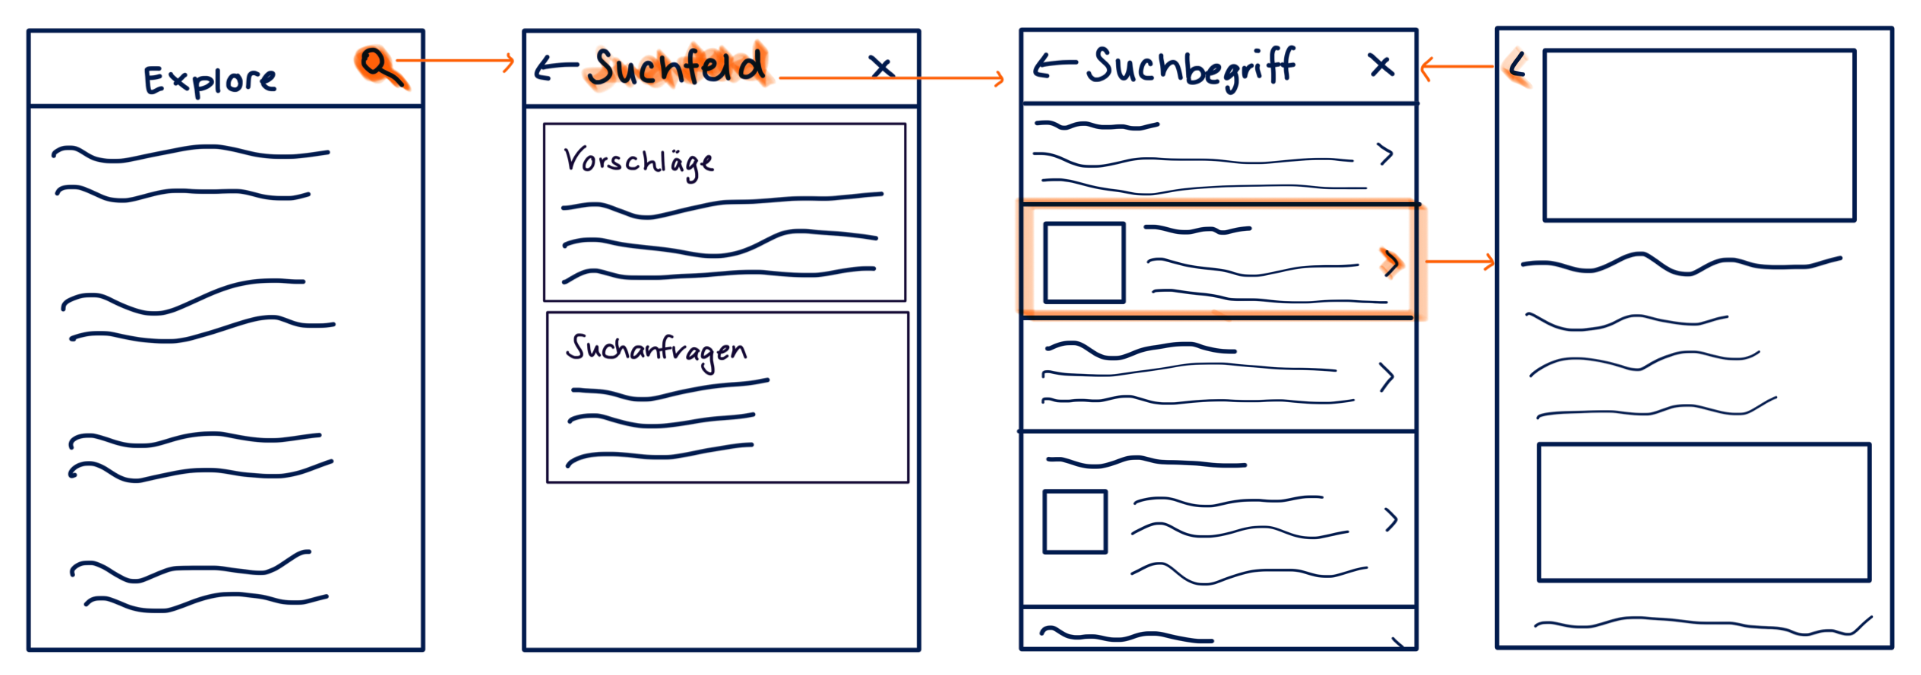 Explore
Suchfeld
Vorschläge
Suchanfragen
Suchbegriff